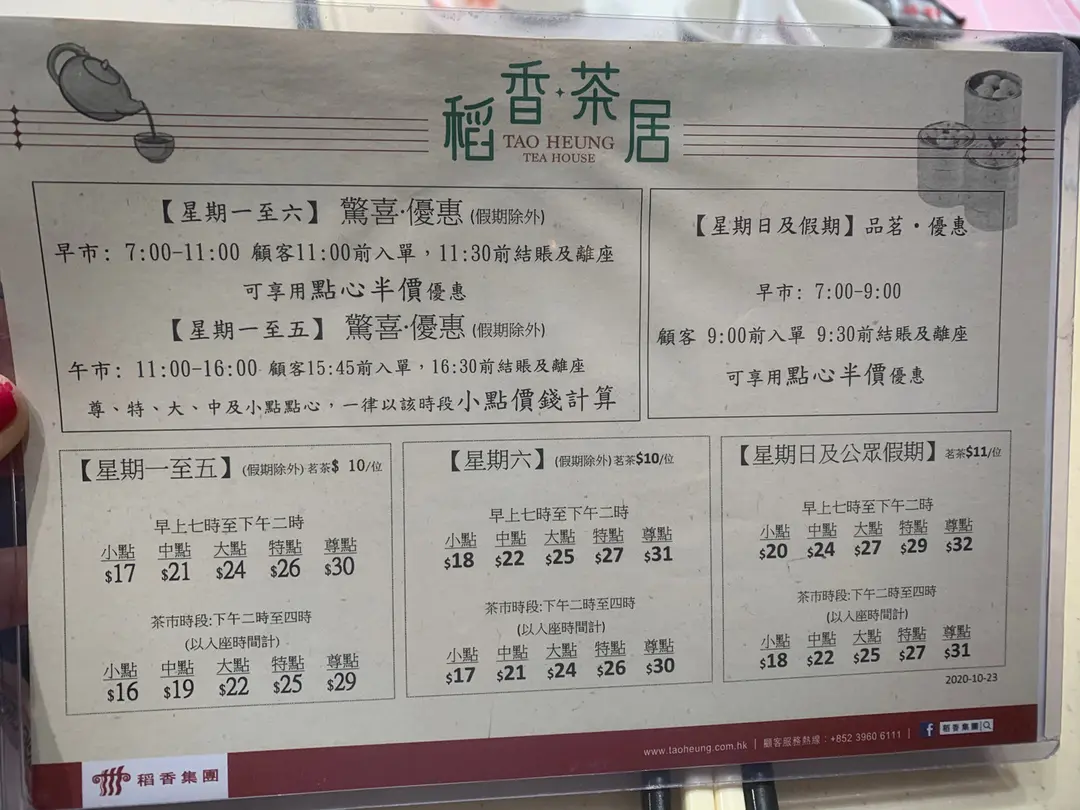 稻香·茶居
TAO HEUNG
TEA HOUSE
【星期一至六】 驚喜·優惠 (假期除外)
早市: 7:00-11:00 顧客11:00前入單，11:30前結賬及離座
可享用點心半價優惠
【星期一至五】 驚喜·優惠 (假期除外)
午市: 11:00-16:00 顧客15:45前入單，16:30前結賬及離座
尊、特、大、中及小點點心，一律以該時段小點價錢計算
【星期日及假期】品茗·優惠
早市: 7:00-9:00
顧客 9:00前入單 9:30前結賬及離座
可享用點心半價優惠
【星期一至五】(假期除外) 茗茶$ 10/位
早上七時至下午二時
小點 中點 大點 特點 尊點
$17 $21 $24 $26 $30
茶市時段:下午二時至四時
(以入座時間計)
小點 中點 大點 特點 尊點
$16 $19 $22 $25 $29
【星期六】(假期除外) 茗茶$10/位
早上七時至下午二時
小點 中點 大點 特點 尊點
$18 $22 $25 $27 $31
茶市時段:下午二時至四時
(以入座時間計)
小點 中點 大點 特點 尊點
$17 $21 $24 $26 $30
【星期日及公眾假期】茗茶$11/位
早上七時至下午二時
小點 中點 大點 特點 尊點
$20 $24 $27 $29 $32
茶市時段:下午二時至四時
(以入座時間計)
小點 中點 大點 特點 尊點
$18 $22 $25 $27 $31
2020-10-23
稻香集團
www.taoheung.com.hk | 顧客服務熱線：+852 3960 6111 | f 稻香集團